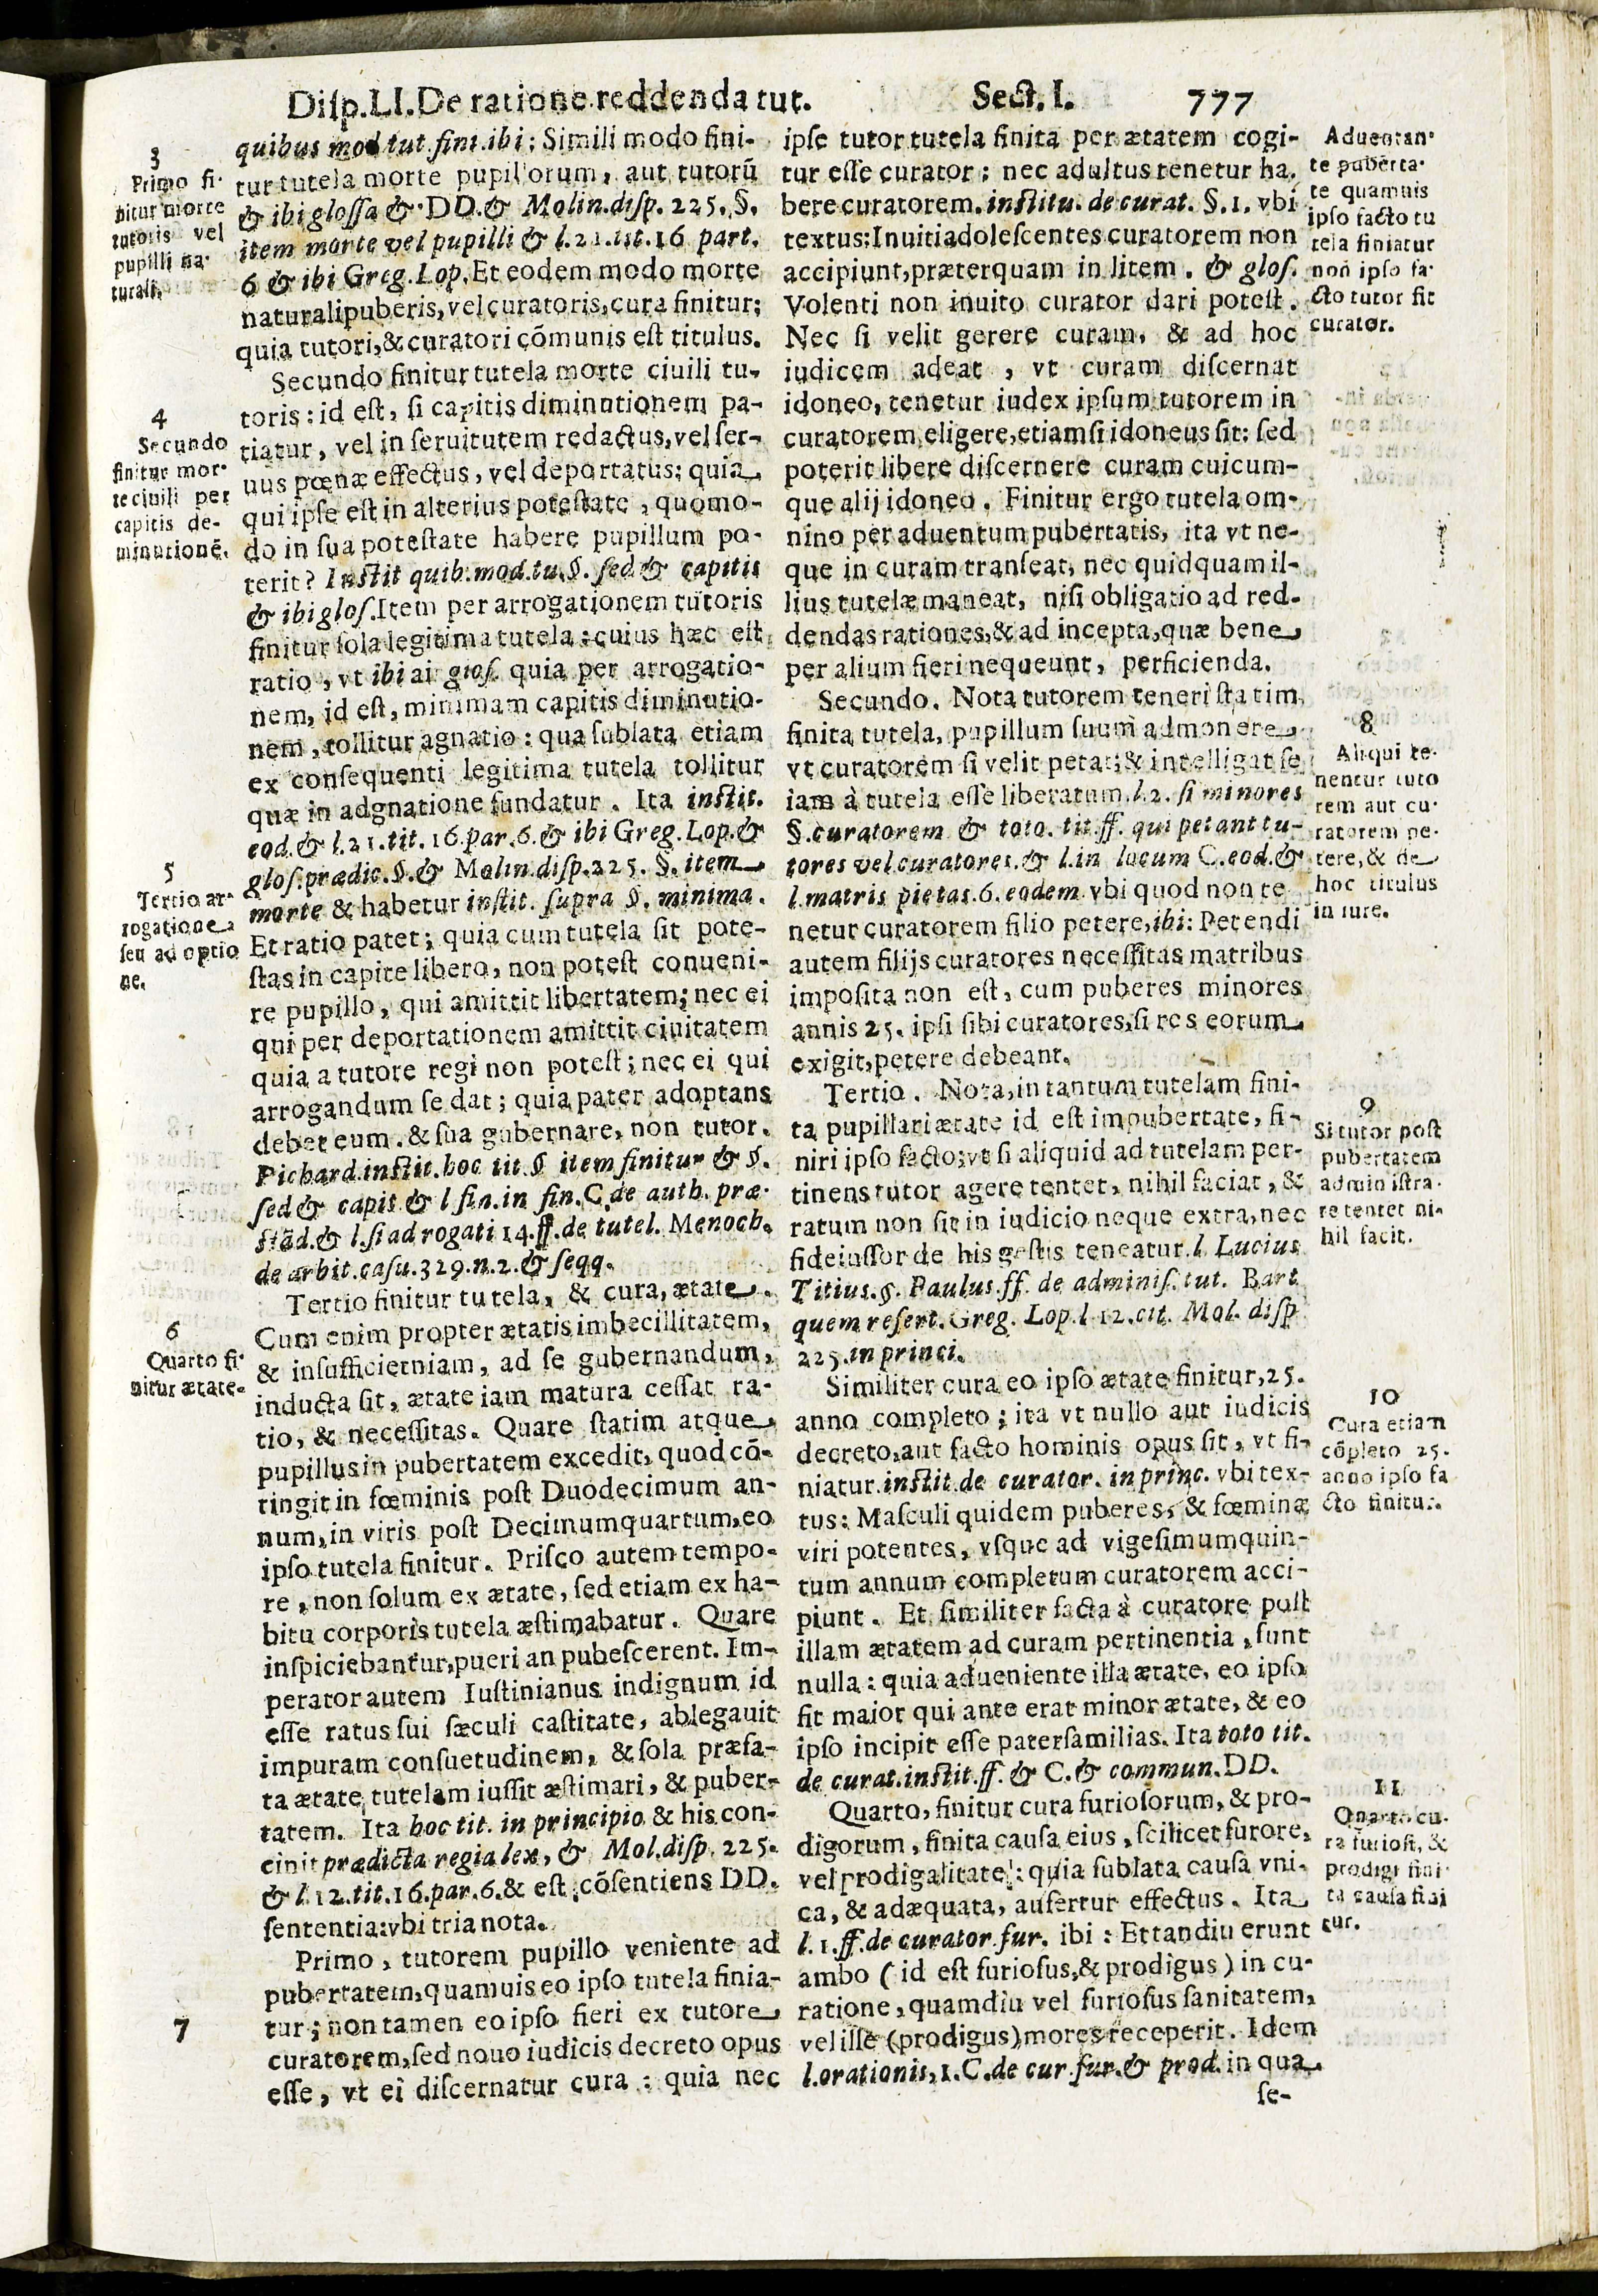 Disp.LI.De ratione reddenda tut. Sect. I. 777
3
Primo fi-
nitur morte
tutoris vel
pupilli na-
turali.
4
Secundo
finitur mor-
te ciuili per
capitis de-
minutionē.
5
Tertio ar-
rogatione
seu adoptio
ne.
6
Quarto fi-
nitur ætate.
7
quibus mod tut.fint.ibi; Simili modo fini-
tur tutela morte pupillorum, aut tutorū
& ibi glossa & DD.& Molin.disp. 225. §.
item morte vel pupilli & l.21.tit.16 part.
6 & ibi Greg.Lop. Et eodem modo morte
naturali puberis, vel curatoris, cura finitur;
quia tutori, & curatori cōmunis est titulus.
Secundo finitur tutela morte ciuili tu-
toris: id est, si capitis diminutionem pa-
tiatur, vel in seruitutem redactus, vel ser-
uus pœnæ effectus, vel deportatus: quia
qui ipse est in alterius potestate, quomo-
do in sua potestate habere pupillum po-
terit? Instit quib.mod.tu.§. sed & capitis
& ibi glos. Item per arrogationem tutoris
finitur sola legitima tutela: cuius hæc est
ratio, vt ibi ai glos. quia per arrogatio-
nem, id est, minimam capitis diminutio-
nem, tollitur agnatio: qua sublata etiam
ex consequenti legitima tutela tollitur
quæ in adgnatione fundatur. Ita instit.
eod.& l.21.tit.16.par.6.& ibi Greg.Lop.&
glos.prædic.§.& Molin.disp.225. §.item
morte & habetur instit. supra §. minima.
Et ratio patet; quia cum tutela sit pote-
stas in capite libero, non potest conueni-
re pupillo, qui amittit libertatem; nec ei
qui per deportationem amittit ciuitatem
quia a tutore regi non potest; nec ei qui
arrogandum se dat; quia pater adoptans
debet eum.& sua gubernare, non tutor.
Pichard.instit.hoc tit § item finitur & §.
sed & capit & l fin.in fin.C.de auth. præ-
stād.& l.si adrogati 14.ff.de tutel. Menoch.
de arbit.casu.329.n.2.& seqq.
Tertio finitur tutela, & cura, ætate.
Cum enim propter ætatis imbecillitatem,
& insufficientniam, ad se gubernandum,
inducta sit, ætate iam matura cessat ra-
tio, & necessitas. Quare statim atque
pupillus in pubertatem excedit, quod cō-
tingit in fœminis post Duodecimum an-
num, in viris post Decimumquartum, eo
ipso tutela finitur. Prisco autem tempo-
re, non solum ex ætate, sed etiam ex ha-
bitu corporis tutela æstimabatur. Quare
inspiciebantur, pueri an pubescerent. Im-
perator autem Iustinianus indignum id
esse ratus sui sæculi castitate, ablegauit
impuram consuetudinem, & sola præfa-
ta ætate tutelam iussit æstimari, & puber-
tatem. Ita hoc tit. in principio & his con-
cinit prædicta regia lex, & Mol.disp. 225.
& l.12.tit.16.par.6.& est cōsentiens DD.
sententia: vbi tria nota.
Primo, tutorem pupillo veniente ad
pubertatem, quamuis eo ipso tutela finia-
tur; non tamen eo ipso fieri ex tutore
curatorem, sed nouo iudicis decreto opus
esse, vt ei discernatur cura: quia nec
ipse tutor tutela finita per ætatem cogi-
tur esse curator; nec adultus tenetur ha-
bere curatorem. institu. de curat. §.1. vbi
textus: Inuiti adolescentes curatorem non
accipiunt, præterquam in litem. & glos.
Volenti non inuito curator dari potest.
Nec si velit gerere curam, & ad hoc
iudicem adeat, vt curam discernat
idoneo, tenetur iudex ipsum tutorem in
curatorem eligere, etiamsi idoneus sit: sed
poterit libere discernere curam cuicum-
que alij idoneo. Finitur ergo tutela om-
nino per aduentum pubertatis, ita vt ne-
que in curam transeat, nec quidquam il-
lius tutelæ maneat, nisi obligatio ad red-
dendas rationes, & ad incepta, quæ bene
per alium fieri nequeunt, perficienda.
Secundo. Nota tutorem teneri statim
finita tutela, pupillum suum admonere
vt curatorem si velit petat; & intelligat se
iam à tutela esse liberatum.l.2. si minores
§.curatorem & toto. tit.ff. qui petant tu-
tores vel curatores.& l.in locum C.eod.&
l.matris pietas.6. eodem vbi quod non te
netur curatorem filio petere, ibi: Petendi
autem filijs curatores necessitas matribus
imposita non est, cum puberes minores
annis 25. ipsi sibi curatores, si res eorum
exigit, petere debeant.
Tertio. Nota, in tantum tutelam fini-
ta pupillari ætate id est impubertate, fi-
niri ipso facto; vt si aliquid ad tutelam per-
tinens tutor agere tentet, nihil faciat, &
ratum non sit in iudicio neque extra, nec
fideiussor de his gestis teneatur.l Lucius
Titius.§. Paulus.ff. de adminis.tut. Bart
quem refert. Greg. Lop.l 12.cit. Mol. disp
225.in princi.
Similiter cura eo ipso ætate finitur, 25.
anno completo; ita vt nullo aut iudicis
decreto, aut facto hominis opus sit, vt fi-
niatur.instit.de curator. in princ. vbi tex-
tus: Masculi quidem puberes, & fœminæ
viri potentes, vsque ad vigesimumquin-
tum annum completum curatorem acci-
piunt. Et similiter facta à curatore post
illam ætatem ad curam pertinentia, sunt
nulla: quia adueniente illa ætate, eo ipso
fit maior qui ante erat minor ætate, & eo
ipso incipit esse paterfamilias. Ita toto tit.
de curat.instit.ff.& C.& commun.DD.
Quarto, finitur cura furiosorum, & pro-
digorum, finita causa eius, scilicet furore,
vel prodigalitate: quia sublata causa vni-
ca, & adæquata, aufertur effectus. Ita
l.1.ff.de curator.fur. ibi: Et tandiu erunt
ambo (id est furiosus, & prodigus) in cu-
ratione, quamdiu vel furiosus sanitatem,
vel ille (prodigus) mores receperit. Idem
l.orationis, 1.C.de cur.fur.& prod. in qua
se-
Aduentan-
te puberta-
te quamuis
ipso facto tu
tela finiatur
non ipso fa-
cto tutor fit
curator.
8
Aliqui te-
nentur tuto
rem aut cu-
ratorem pe-
tere, & de
hoc titulus
in iure.
9
Si tutor post
pubertatem
administra-
re tentet ni-
hil facit.
10
Cura etiam
cōpleto 25.
anno ipso fa
cto finitur.
11
Quarto cu-
ra furiosi, &
prodigi fini-
ta causa fini
tur.